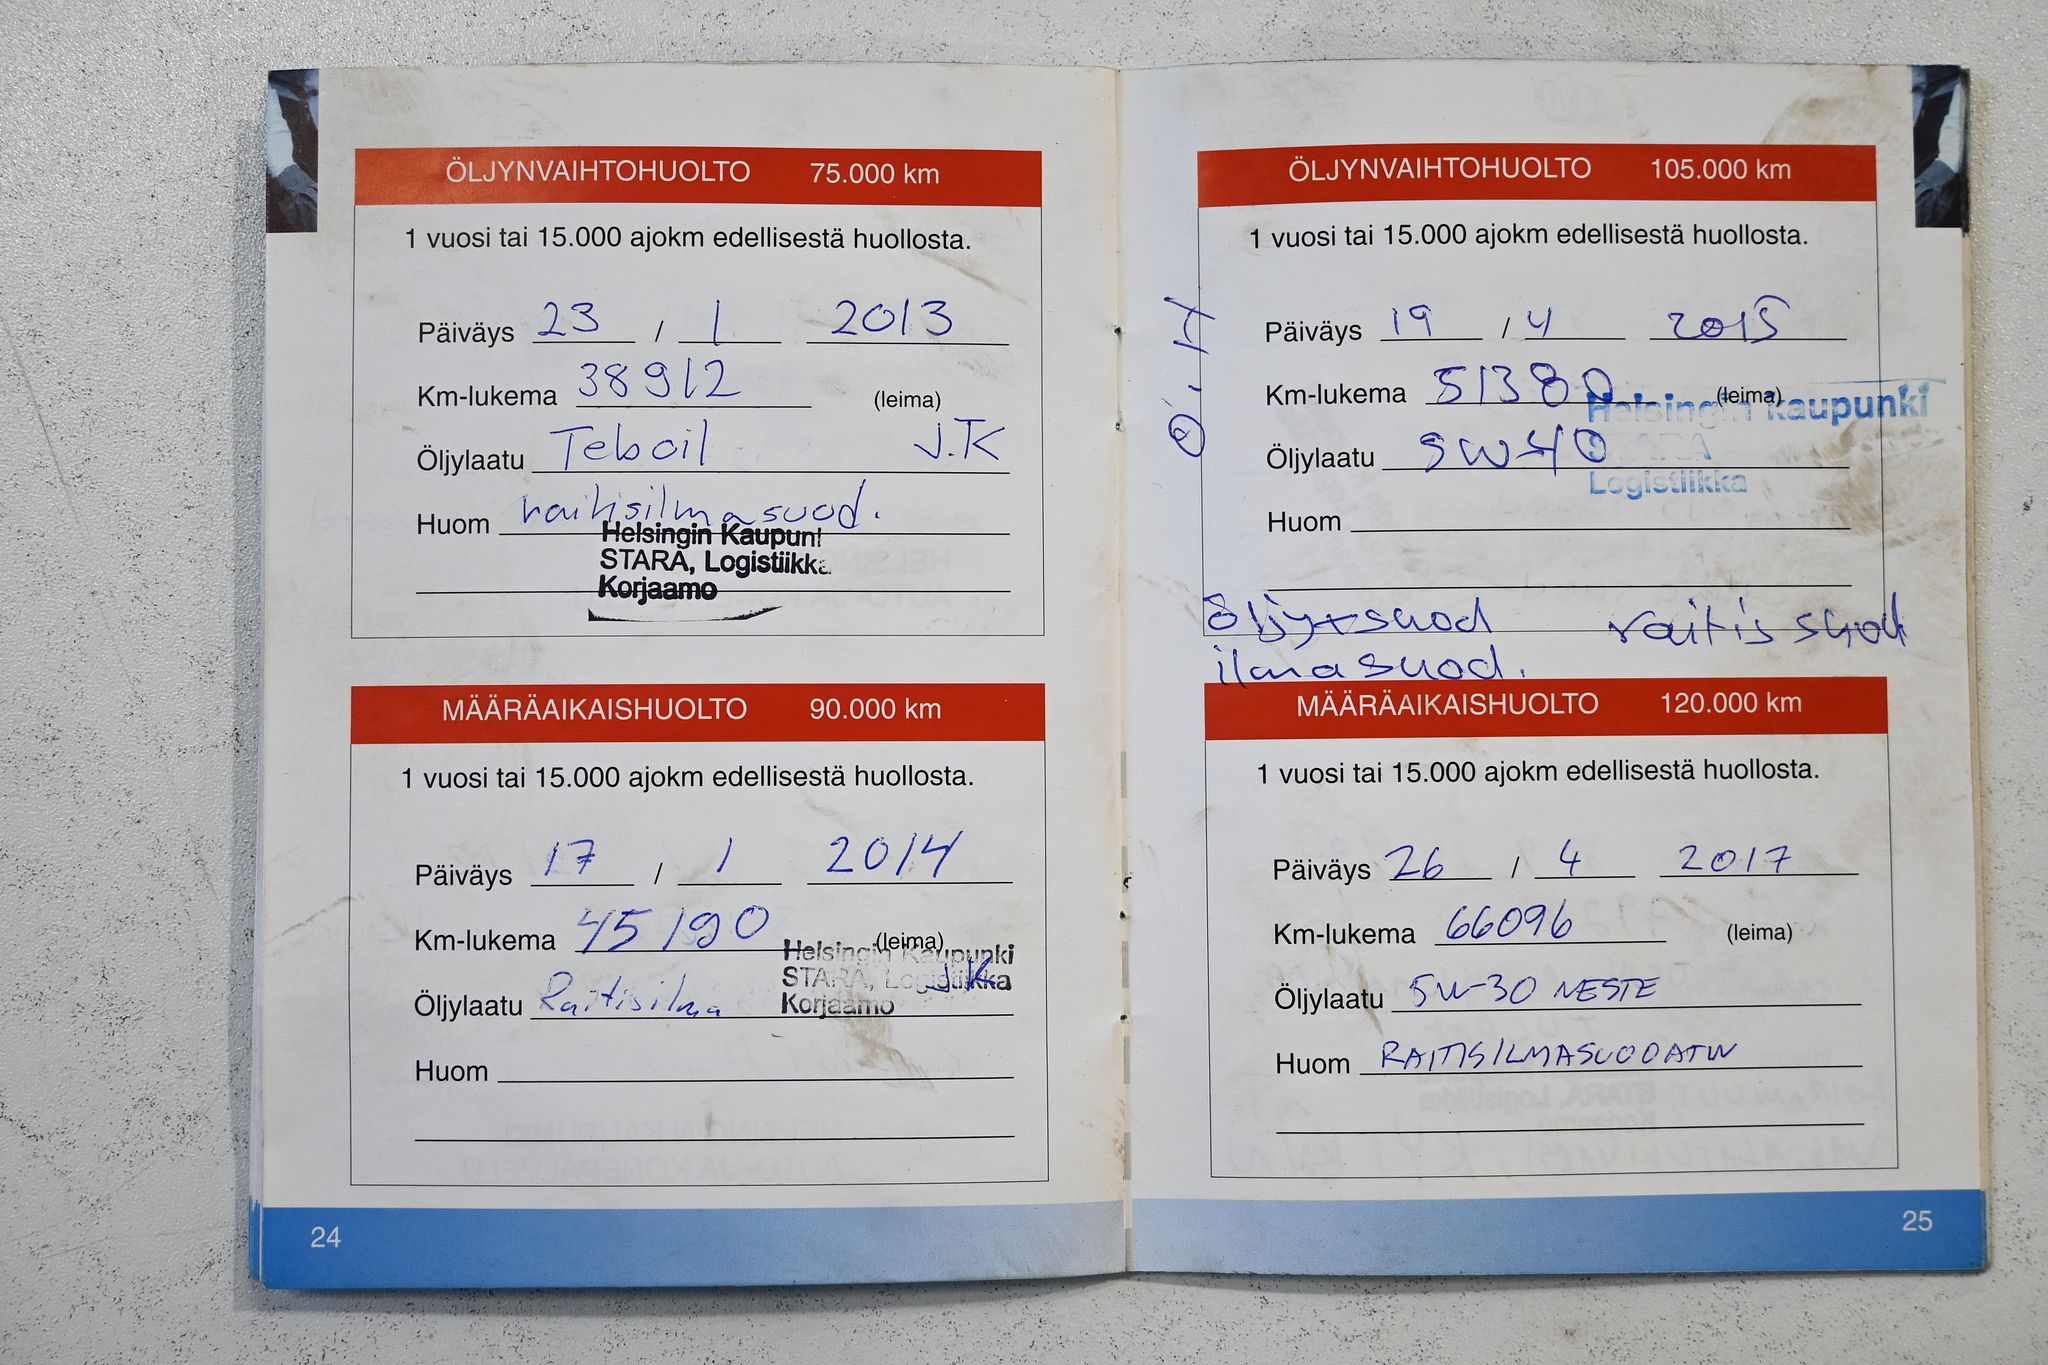 ÖLJYNVAIHTOHUOLTO 75.000 km
1 vuosi tai 15.000 ajokm edellisestä huollosta.
Päiväys 23 / 1 2013
Km-lukema 38912 (leima)
Öljylaatu Teboil J.K
Huom raitisilmasuod.
Helsingin Kaupun
STARA, Logistiikka
Korjaamo
MÄÄRÄAIKAISHUOLTO 90.000 km
1 vuosi tai 15.000 ajokm edellisestä huollosta.
Päiväys 17 / 1 2014
Km-lukema 45190 (leima)
Helsingin Kaupunki
STARA, Logistiikka J.K
Korjaamo
Öljylaatu Raitisilma
Huom
24
ÖLJYNVAIHTOHUOLTO 105.000 km
1 vuosi tai 15.000 ajokm edellisestä huollosta.
Ö.H
Päiväys 19 / 4 2015
Km-lukema 51380 (leima)
Helsingin Kaupunki
STARA
Logistiikka
Öljylaatu 5W40
Huom
Öljy+suod raitis suod
ilmasuod.
MÄÄRÄAIKAISHUOLTO 120.000 km
1 vuosi tai 15.000 ajokm edellisestä huollosta.
Päiväys 26 / 4 2017
Km-lukema 66096 (leima)
Öljylaatu 5W-30 NESTE
Huom RAITISILMASUODATIN
25